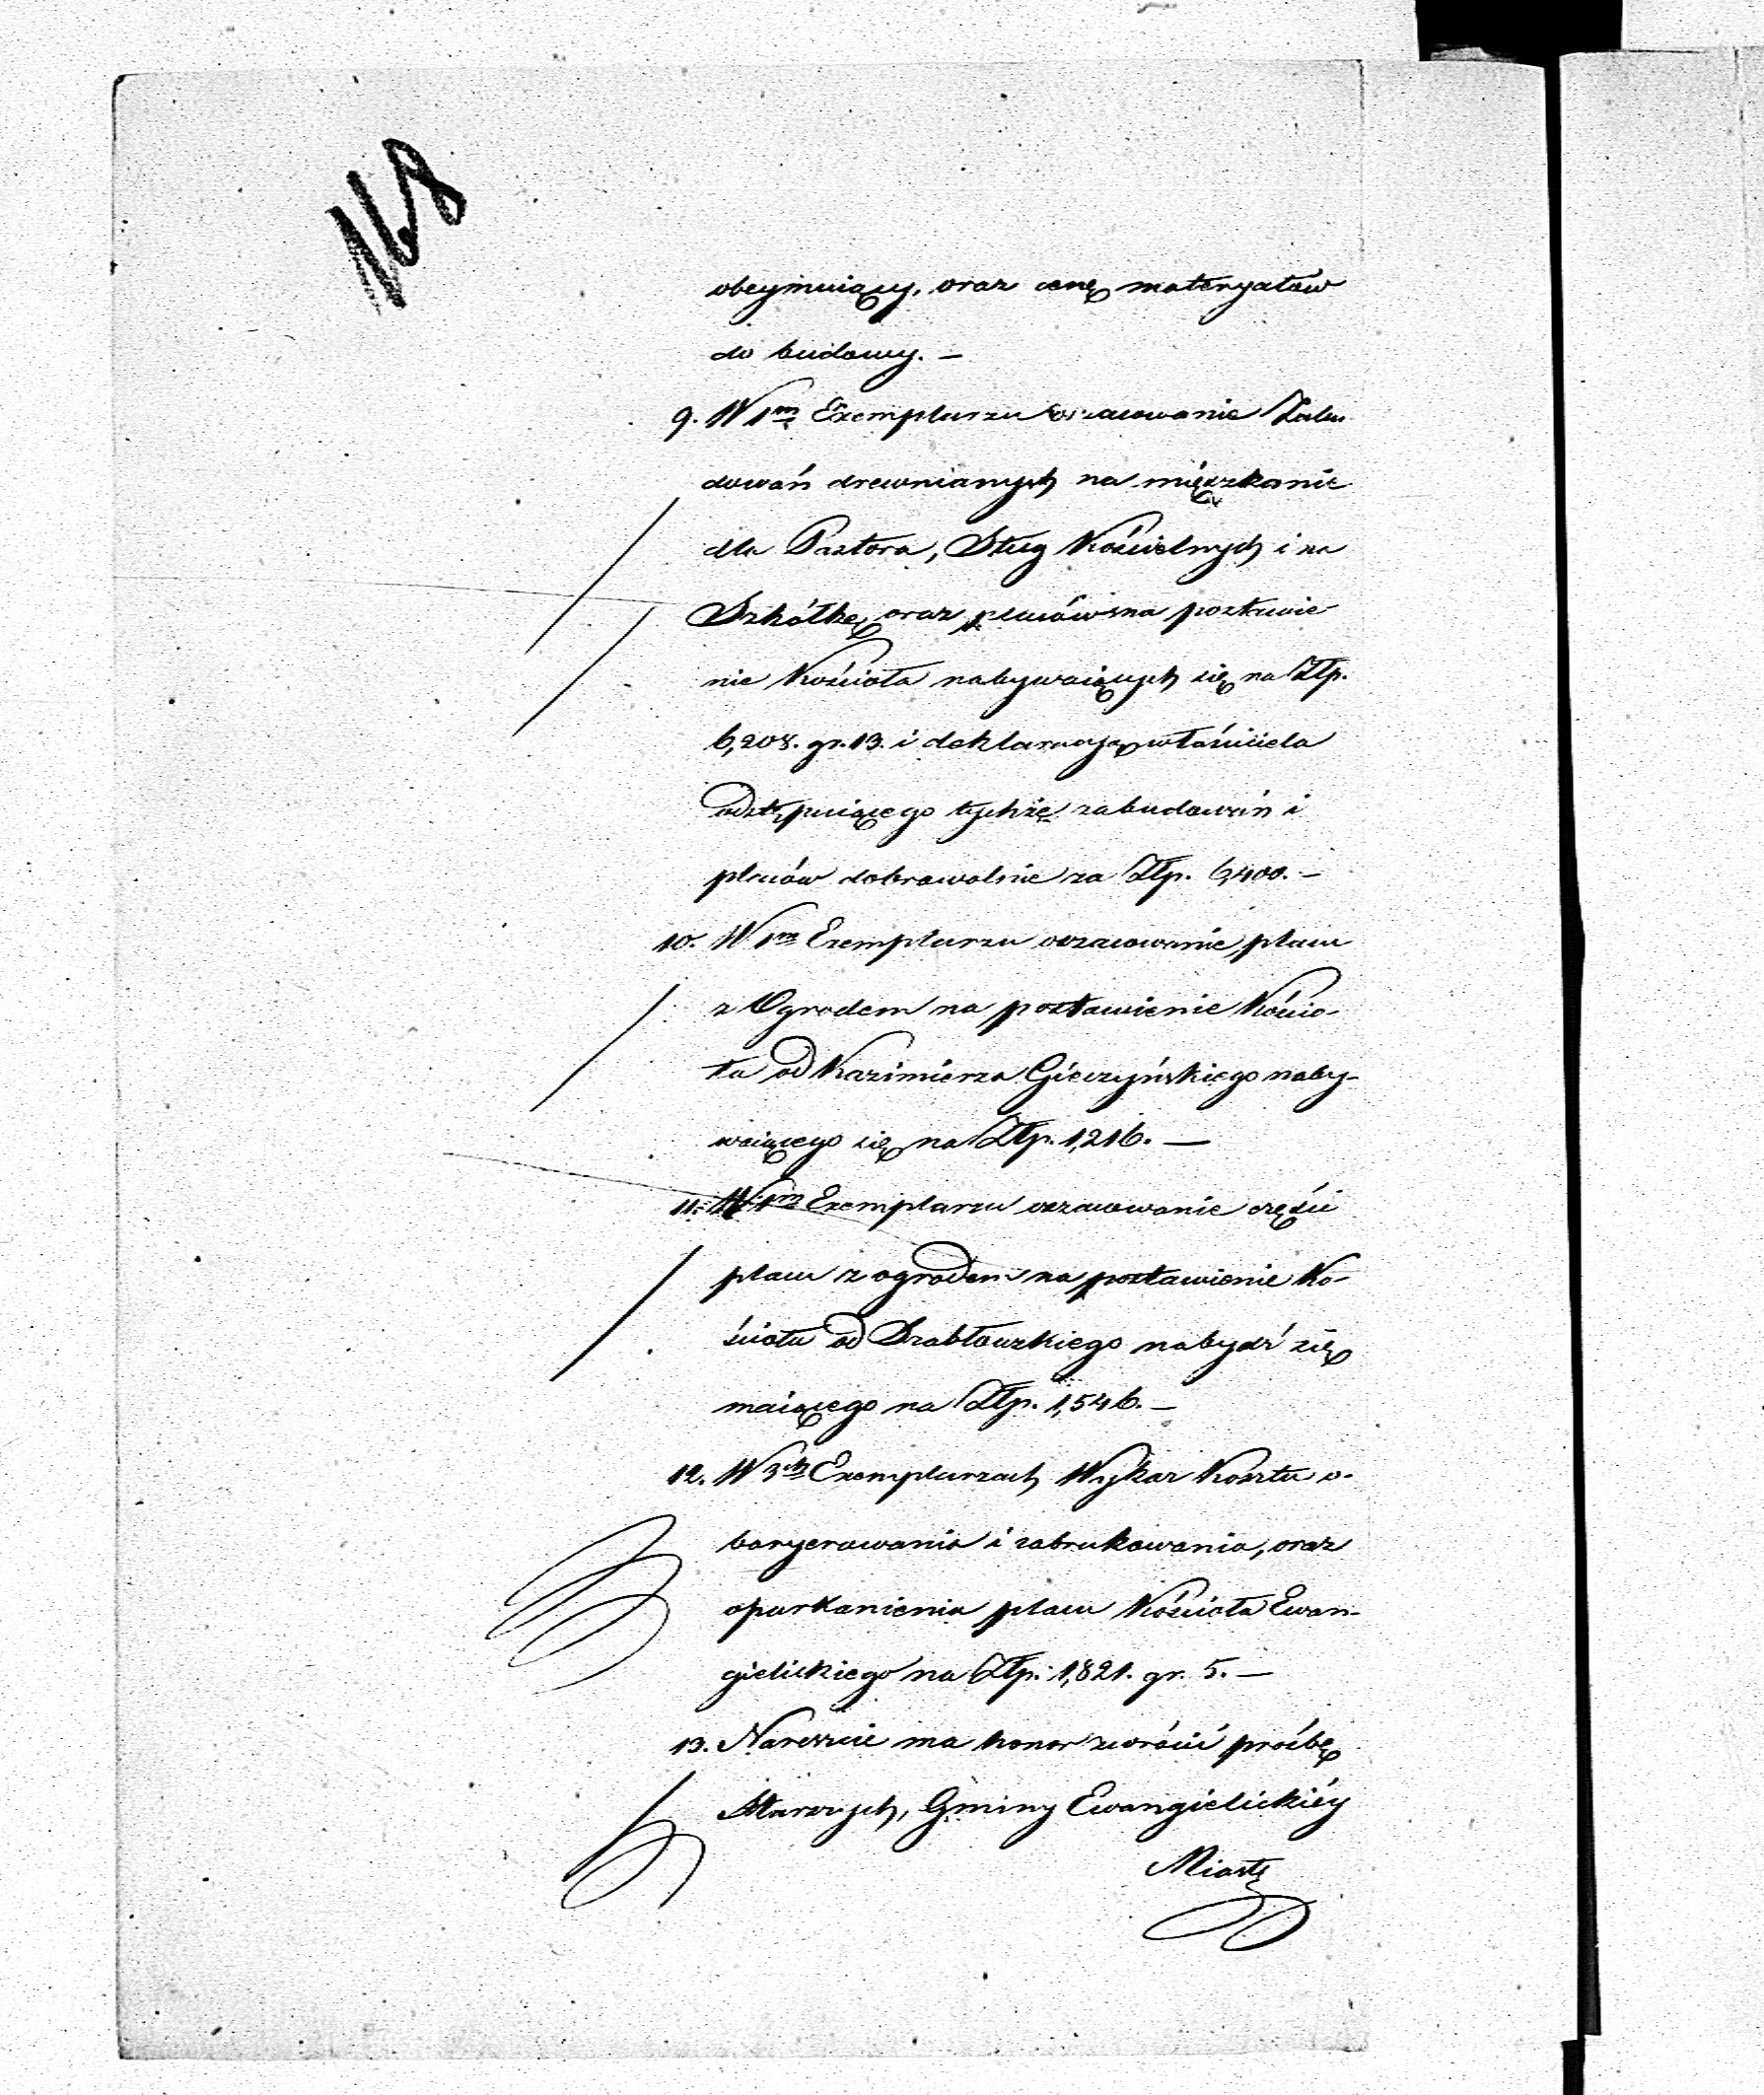 obeymuiący, oraz cenę materyałów
do budowy. —
9. W 1m Exemplarzu oszacowanie Zabu
dowań drewnianych na mięszkanie
dla Pastora, Sług Kościelnych i na
Szkółkę, oraz placów na postawie
nie Kościoła nabywaiących się na Złp.
6,208. gr. 13. i deklaracyą właściciela
odstępuiącego tychże zabudowań i
placów dobrowolnie za Złp. 6,400. —
10. W 1m Exemplarzu oszacowanie placu
z Ogrodem na postawienie Kościo-
ła od Kazimierza Gieczyńskiego naby-
waiącego się na Złp. 1,216. —
11. W 1m Exemplarzu oszacowanie części
placu z ogrodem na postawienie Ko-
ścioła od Szabłowskiego nabydź się
maiącego na Złp. 1,546. —
12. W 3ch Exemplarzach Wykaz Kosztu o-
baryerowania i zabrukowania, oraz
oparkanienia placu Kościoła Ewan-
gielickiego na Złp. 1,821. gr. 5. —
13. Nareszcie ma honor zwrócić prośbę
Starszych, Gminy Ewangielickiéy
Miasta